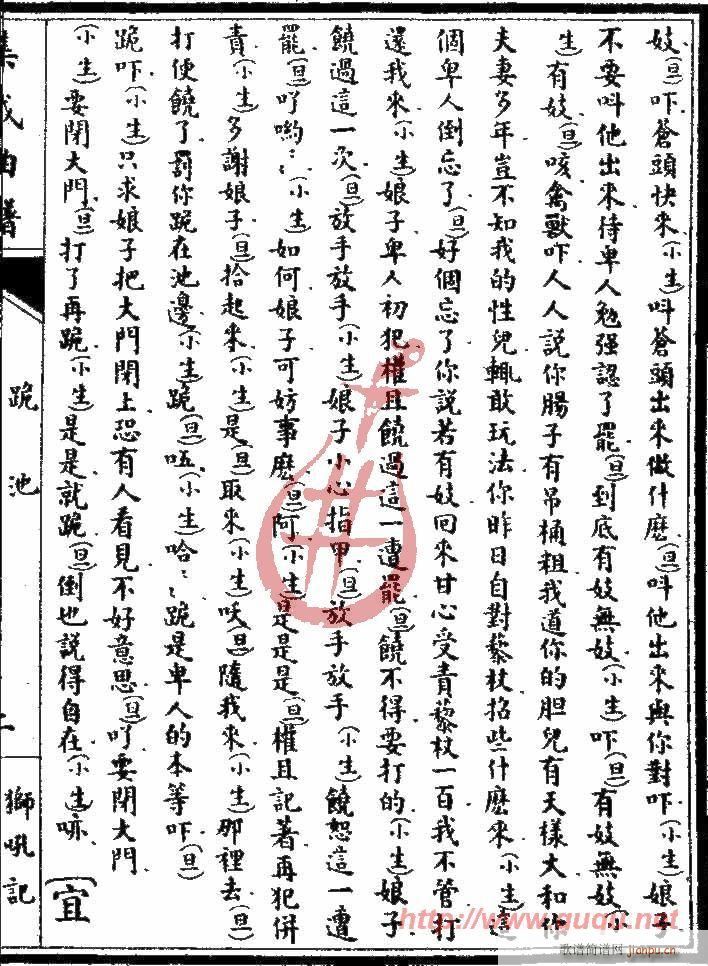 妓(旦)吓蒼頭快来(小生)呌蒼頭出来做什麽(旦)呌他出来與你對吓(小生)娘子
不要呌他出来待卑人勉强認了罷(旦)到底有妓無妓(小生)吓(旦)有妓無妓(小
生)有妓(旦)咳禽獸吓人人説你腸子有吊桶粗我道你的胆兒有天樣大和你
夫妻多年豈不知我的性兒輒敢玩法你昨日自對藜杖招些什麽来(小生)這
個卑人倒忘了(旦)好個忘了你説若有妓回来甘心受責藜杖一百我不管打
還我来(小生)娘子卑人初犯權且饒過這一遭罷(旦)饒不得要打的(小生)娘子
饒過這一次(旦)放手放手(小生)娘子小心指甲(旦)放手放手(小生)饒恕這一遭
罷(旦)吖喲〻(小生)如何娘子可妨事麽(旦)阿(小生)是是是(旦)權且記著再犯併
責(小生)多謝娘子(旦)拾起来(小生)是(旦)取来(小生)吷(旦)隨我来(小生)那裡去(旦)
打便饒了罰你跪在池邊(小生)跪(旦)唔(小生)哈〻〻跪是卑人的本等吓(旦)
跪吓(小生)只求娘子把大門閉上恐有人看見不好意思(旦)吖要閉大門
(小生)要閉大門(旦)打了再跪(小生)是是就跪(旦)倒也説得自在(小生)嚇
宜
集成曲譜
跪池
獅吼記
http://www.ququ.net
歌谱简谱网 jianpu.cn